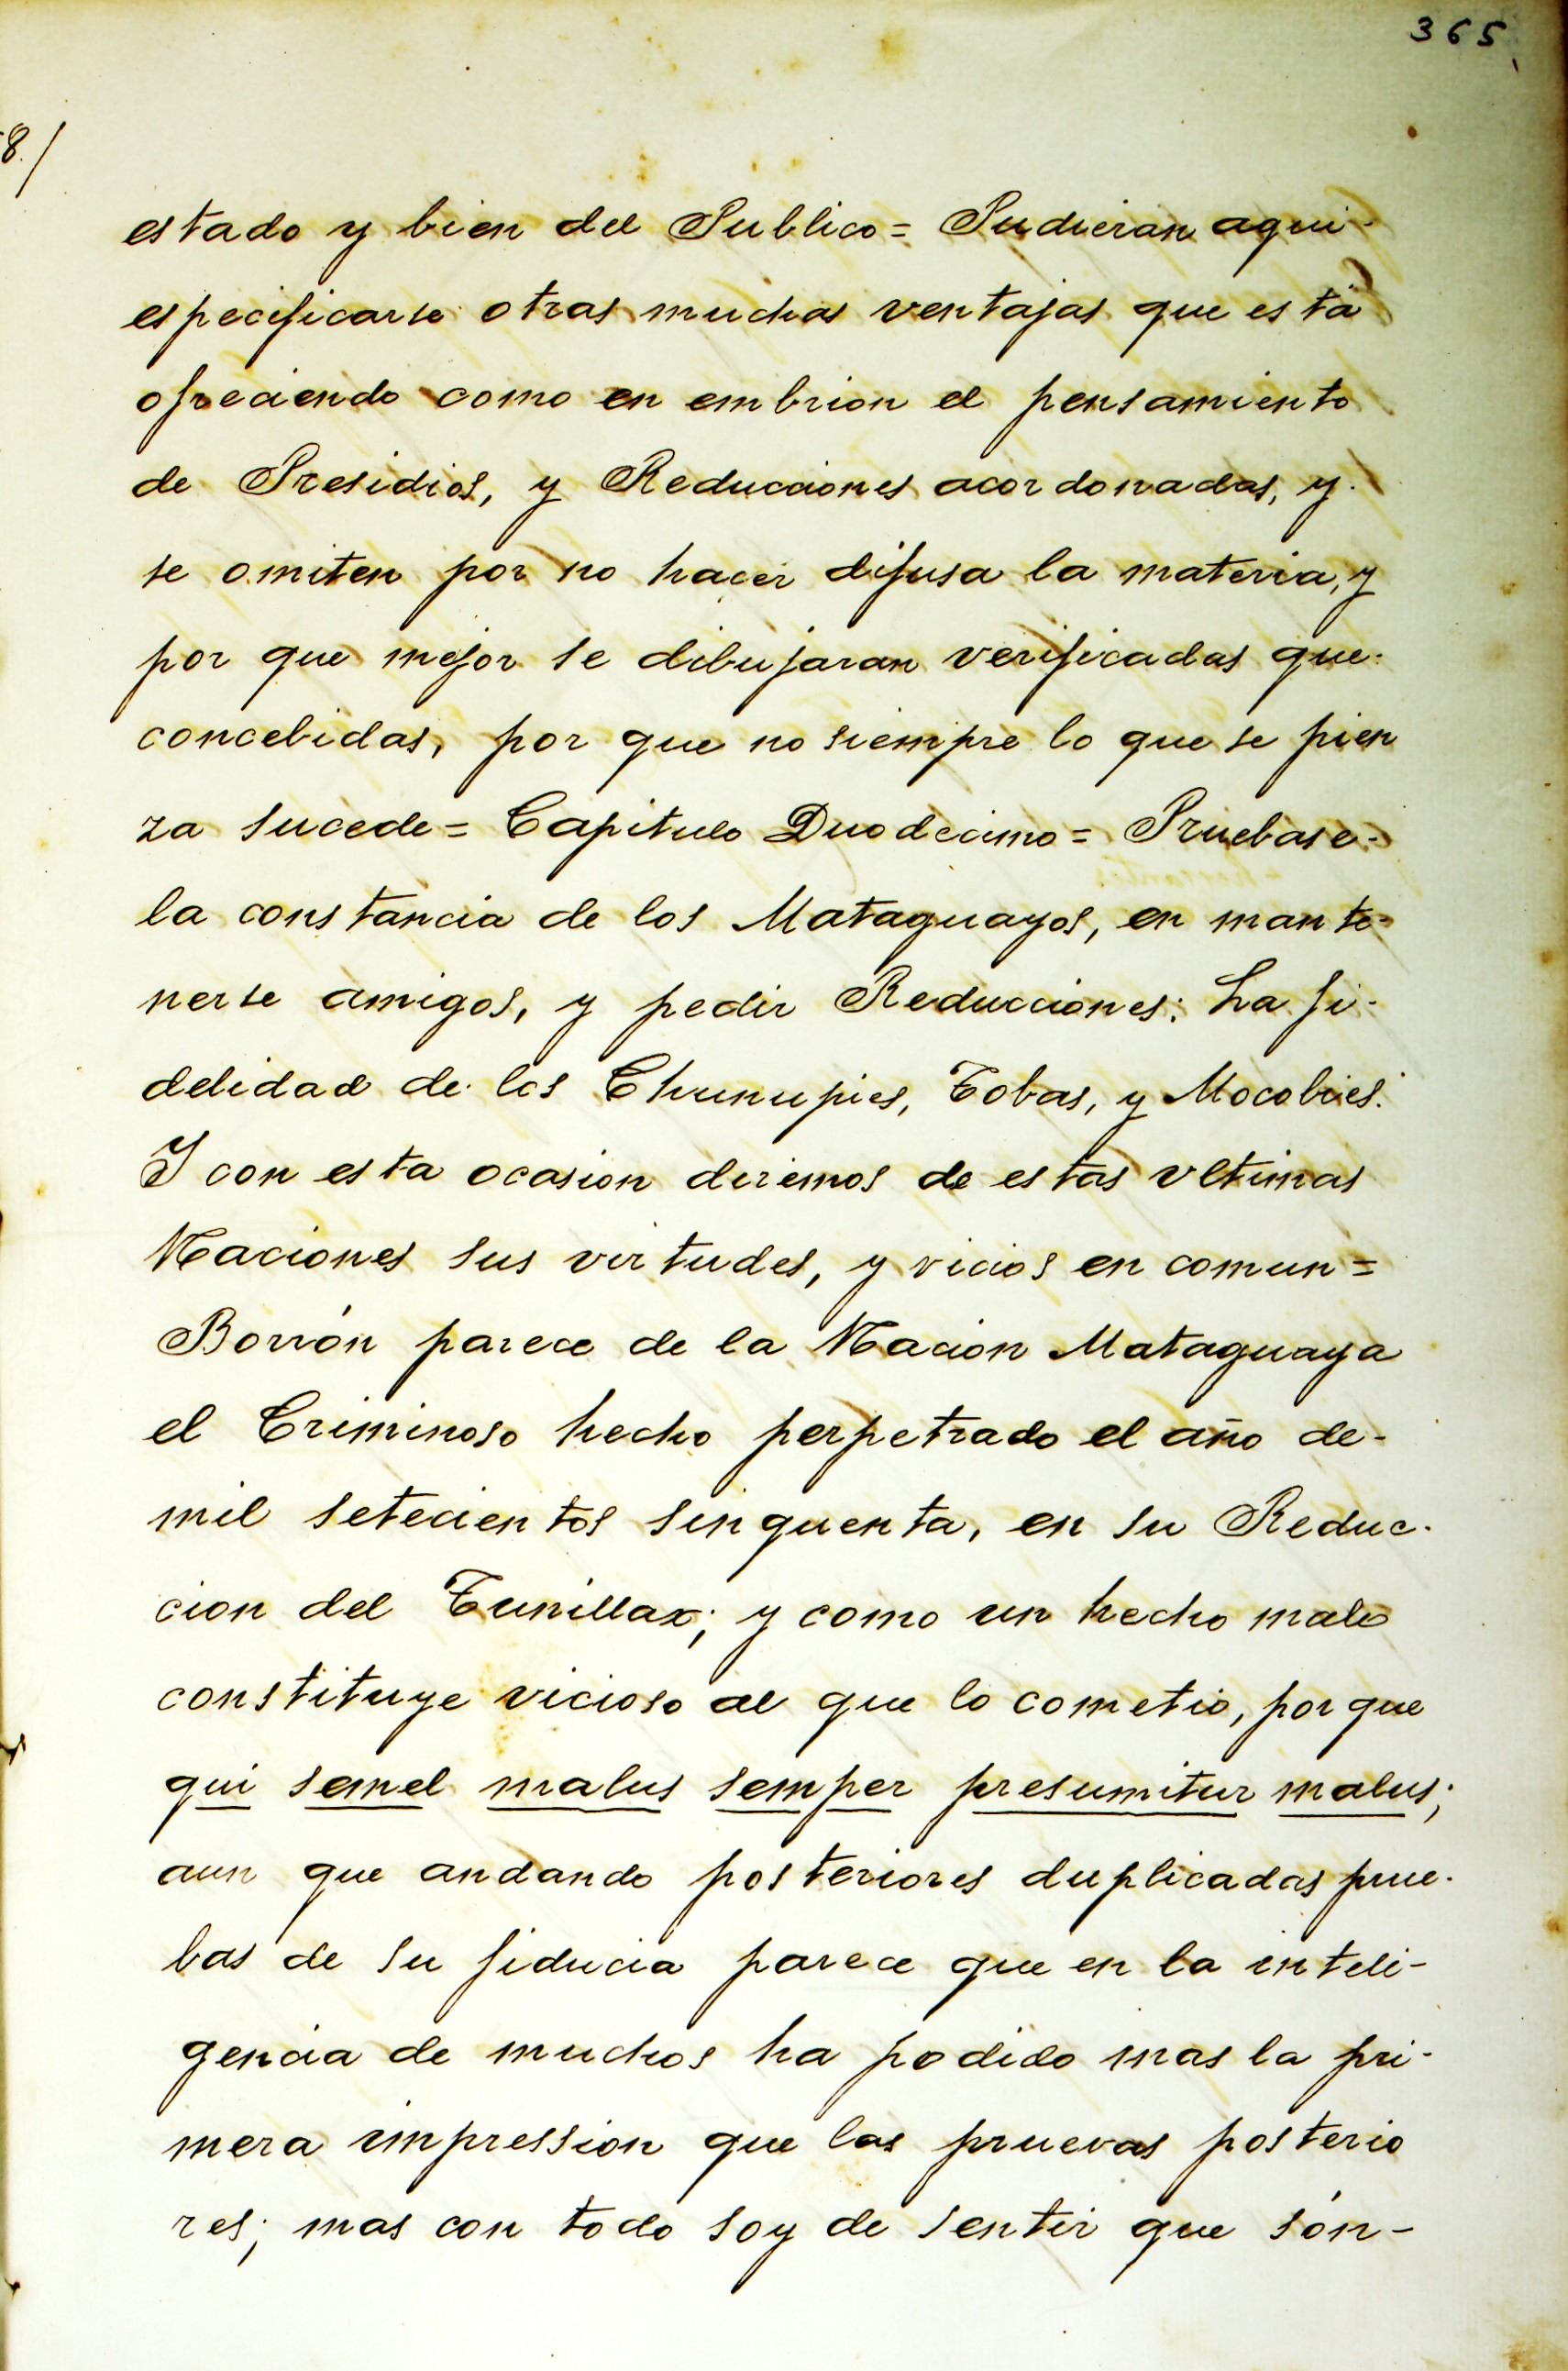 365
8./
estado y bien del Publico= Pudieran aqui-
especificarse otras muchas ventajas que està
ofreciendo como en embrion el pensamiento
de Presidios, y Reducciones acordonadas, y-
se omiten por no hacer difusa la materia, y
por que mejor se dibujaran verificadas que-
concebidas, por que no siempre lo que se pien
za sucede= Capitulo Duodecimo= Pruebase-
la constancia de los Mataguayos, en mante-
nerse amigos, y pedir Reducciones: La fi-
delidad de los Chunupies, Tobas, y Mocobies:
Y con esta ocasion diremos de estas vltimas
Naciones sus virtudes, y vicios en comun=
Borrón parece de la Nacion Mataguaya
el Criminoso hecho perpetrado el año de-
mil setecientos sinquenta, en su Reduc-
cion del Tunillar; y como un hecho malo
constituye vicioso al que lo cometio, por que
qui semel malus semper presumitur malus;
aun que andando posteriores duplicadas prue-
bas de su fiducia parece que en la inteli-
gencia de muchos ha podido mas la pri-
mera impression que las pruevas posterio
res; mas con todo soy de sentir que són-